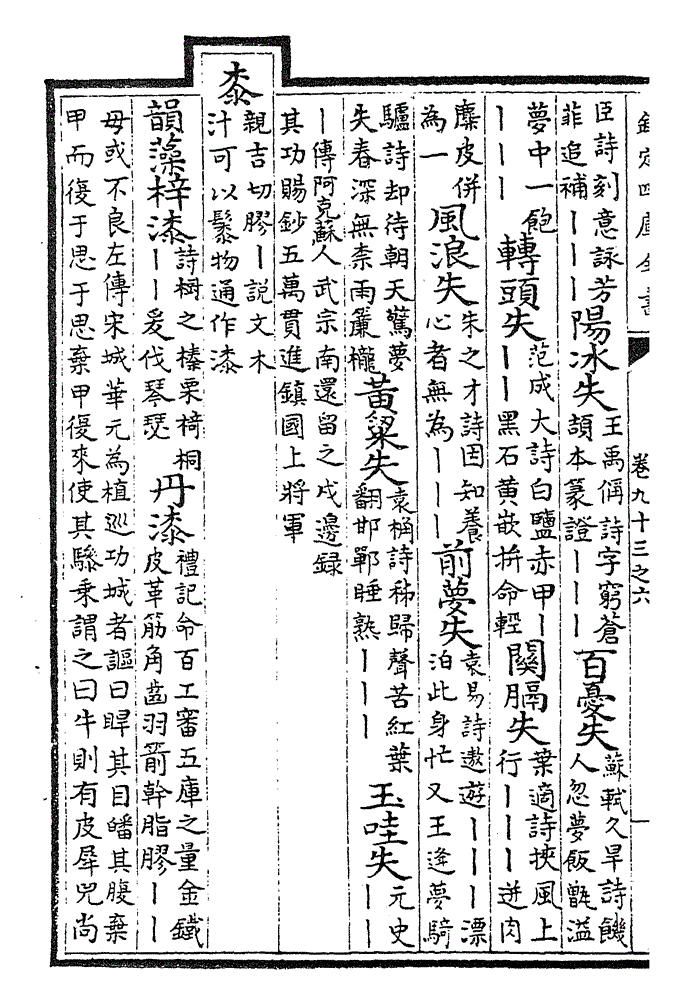 欽定四庫全書
卷九十三之六
臣詩刻意詠芳
菲追補｜｜｜陽冰失王禹偁詩字窮蒼
頡本篆證｜｜｜百憂失蘇軾久旱詩饑
人忽夢飯甑溢
夢中一飽
｜｜｜轉頭失范成大詩白鹽赤甲｜
｜｜黑石黃嵌拚命輕關膈失葉適詩挾風上
行｜｜｜迸肉
麋皮併
為一風浪失朱之才詩因知養
心者無為｜｜｜前夢失袁易詩遨遊｜｜｜漂
泊此身忙又王逢夢騎
驢詩却待朝天驚夢
失春深無柰雨簾櫳黃粱失袁桷詩秭歸聲苦紅葉
翻邯鄲睡熟｜｜｜玉哇失元史
｜｜
｜傳阿克蘇人武宗南還留之戍邊録
其功賜鈔五萬貫進鎮國上將軍
桼親吉切膠｜説文木
汁可以髹物通作漆
韻藻梓漆詩樹之榛栗椅桐
｜｜爰伐琴瑟丹漆禮記命百工審五庫之量金鐵
皮革筋角齒羽箭幹脂膠｜｜
毋或不良左傳宋城華元為植巡功城者謳曰睅其目皤其腹棄
甲而復于思于思棄甲復來使其驂乘謂之曰牛則有皮犀兕尚